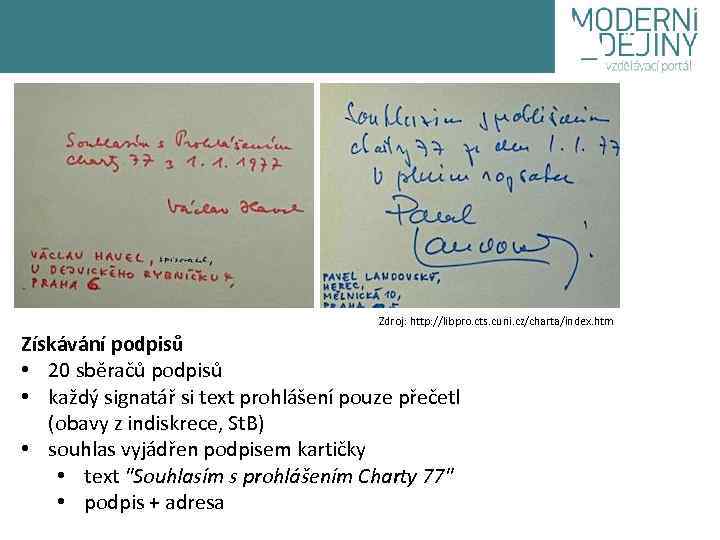 MODERNÍ
_DĚJINY
vzdělávací portál
Souhlasím s Prohlášením
Charty 77 z 1.1.1977
Václav Havel
VÁCLAV HAVEL, spisovatel,
U DEJVICKÉHO RYBNÍČKU 4,
PRAHA 6
Souhlasím s prohlášením
charty 77 ze dne 1.1.77
v plném rozsahu
Pavel
Landovský
PAVEL LANDOVSKÝ,
HEREC,
MĚLNICKÁ 10,
PRAHA 5
Zdroj: http://libpro.cts.cuni.cz/charta/index.htm
Získávání podpisů
• 20 sběračů podpisů
• každý signatář si text prohlášení pouze přečetl
(obavy z indiskrece, St.B)
• souhlas vyjádřen podpisem kartičky
• text "Souhlasím s prohlášením Charty 77"
• podpis + adresa